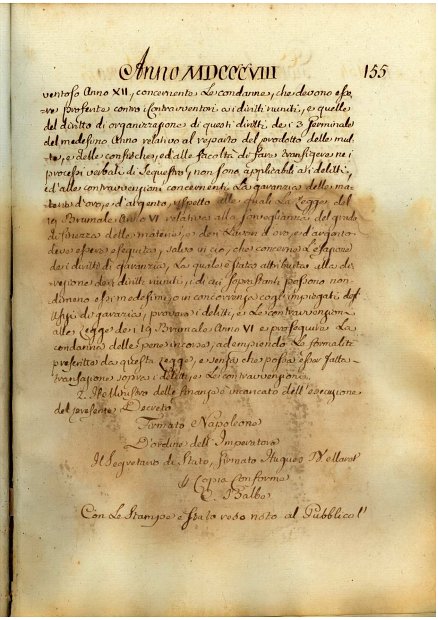 Anno MDCCCVIII 155
ventoso Anno XII, concernente Le condanne, che devono esse-
re proferite contro i Contravventori ai diritti riuniti, e quelle
del diritto di organizzazione di questi diritti de i 3 Germinale
del medesimo Anno relativo al reparto del prodotto delle mul-
te, e delle confische, ed alle facoltà di fare transigere ne i
processi verbali di sequestro, non sono applicabili ai delitti,
ed alle contravvenzioni concernenti La garanzia delle ma-
terie d'oro, e d'argento, rispetto alle quali La Legge del
19 Brumale Anno VI relativa alla sorveglianza del grado
di finezza delle materie, e dei Lavori d'oro, e d'argento
deve essere eseguita, salvo in ciò, che concerne L'esazione
dei diritti di garanzia, La quale è stata attribuita alla di-
rezione dei diritti riuniti, i di cui soprastanti possono non-
dimeno essi medesimi, o in concorrenza cogli impiegati degl'
Ufizj di garanzia, provare i delitti, e Le contravvenzioni
alle Legge dei 19 Brumale Anno VI e proseguire La
condanna delle pene incorse, adempiendo Le formalità
prescritte da questa Legge, e senza che possa esser fatta
transazione sopra i delitti, e Le contravvenzioni
2. Il Ministro delle finanze è incaricato dell'esecuzione
del presente Decreto
Firmato Napoleone
D'ordine dell'Imperatore
Il Segretario di Stato, firmato Hugues
P Copia Conforme
C. Balbo
Con Le Stampe è stato reso noto al Pubblico